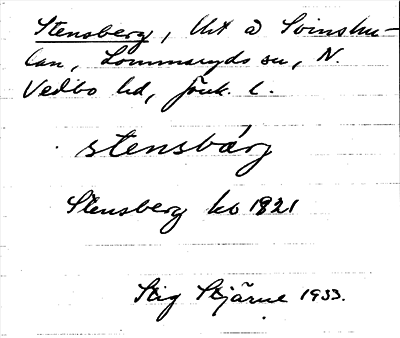 Stensberg, lht å Svinshu-
lan, Lommaryds sn, N.
Vedbo hd, Jönk. l.
stensbärg
Stensberg kb 1821
Stig Stjärne 1933.